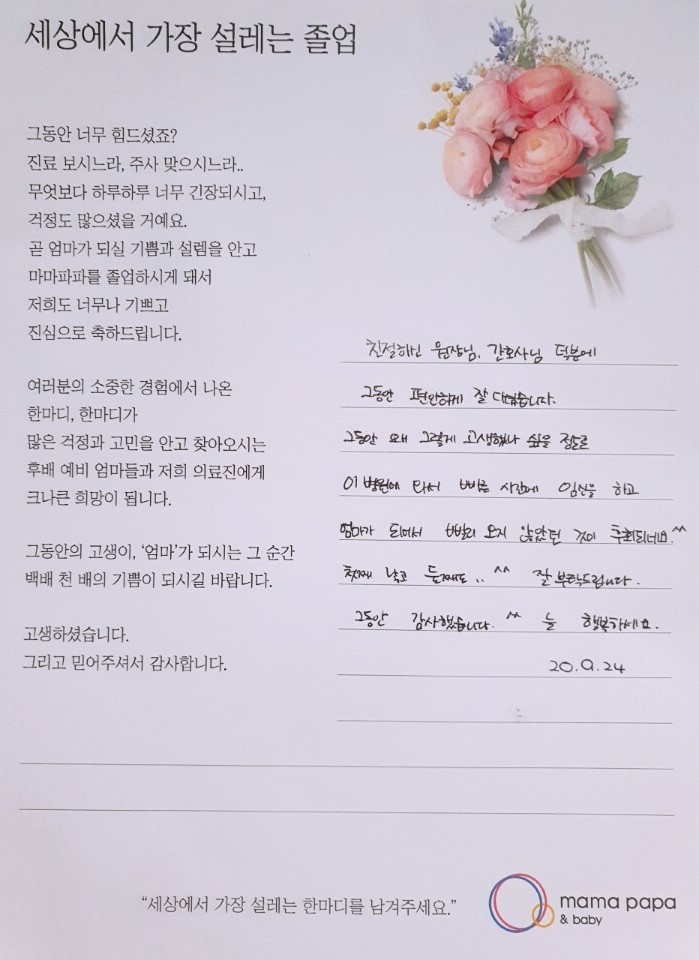 세상에서 가장 설레는 졸업
그동안 너무 힘드셨죠?
진료 보시느라, 주사 맞으시느라..
무엇보다 하루하루 너무 긴장되시고,
걱정도 많으셨을 거예요.
곧 엄마가 되실 기쁨과 설렘을 안고
마마파파를 졸업하시게 돼서
저희도 너무나 기쁘고
진심으로 축하드립니다.
여러분의 소중한 경험에서 나온
한마디, 한마디가
많은 걱정과 고민을 안고 찾아오시는
후배 예비 엄마들과 저희 의료진에게
크나큰 희망이 됩니다.
그동안의 고생이, '엄마'가 되시는 그 순간
백배 천 배의 기쁨이 되시길 바랍니다.
고생하셨습니다.
그리고 믿어주셔서 감사합니다.
친절하신 원장님, 간호사님 덕분에
그동안 편안하게 잘 다녔습니다.
그동안 왜 그렇게 고생했나 싶을 정도로
이 병원에 와서 빠른 시간에 임신을 하고
엄마가 되어서 빨리 오지 않았던 것이 후회되네요.^^
첫째 낳고 둘째도.. ^^ 잘 부탁드립니다.
그동안 감사했습니다. ^^ 늘 행복하세요.
20.9.24
"세상에서 가장 설레는 한마디를 남겨주세요."
mama papa
& baby